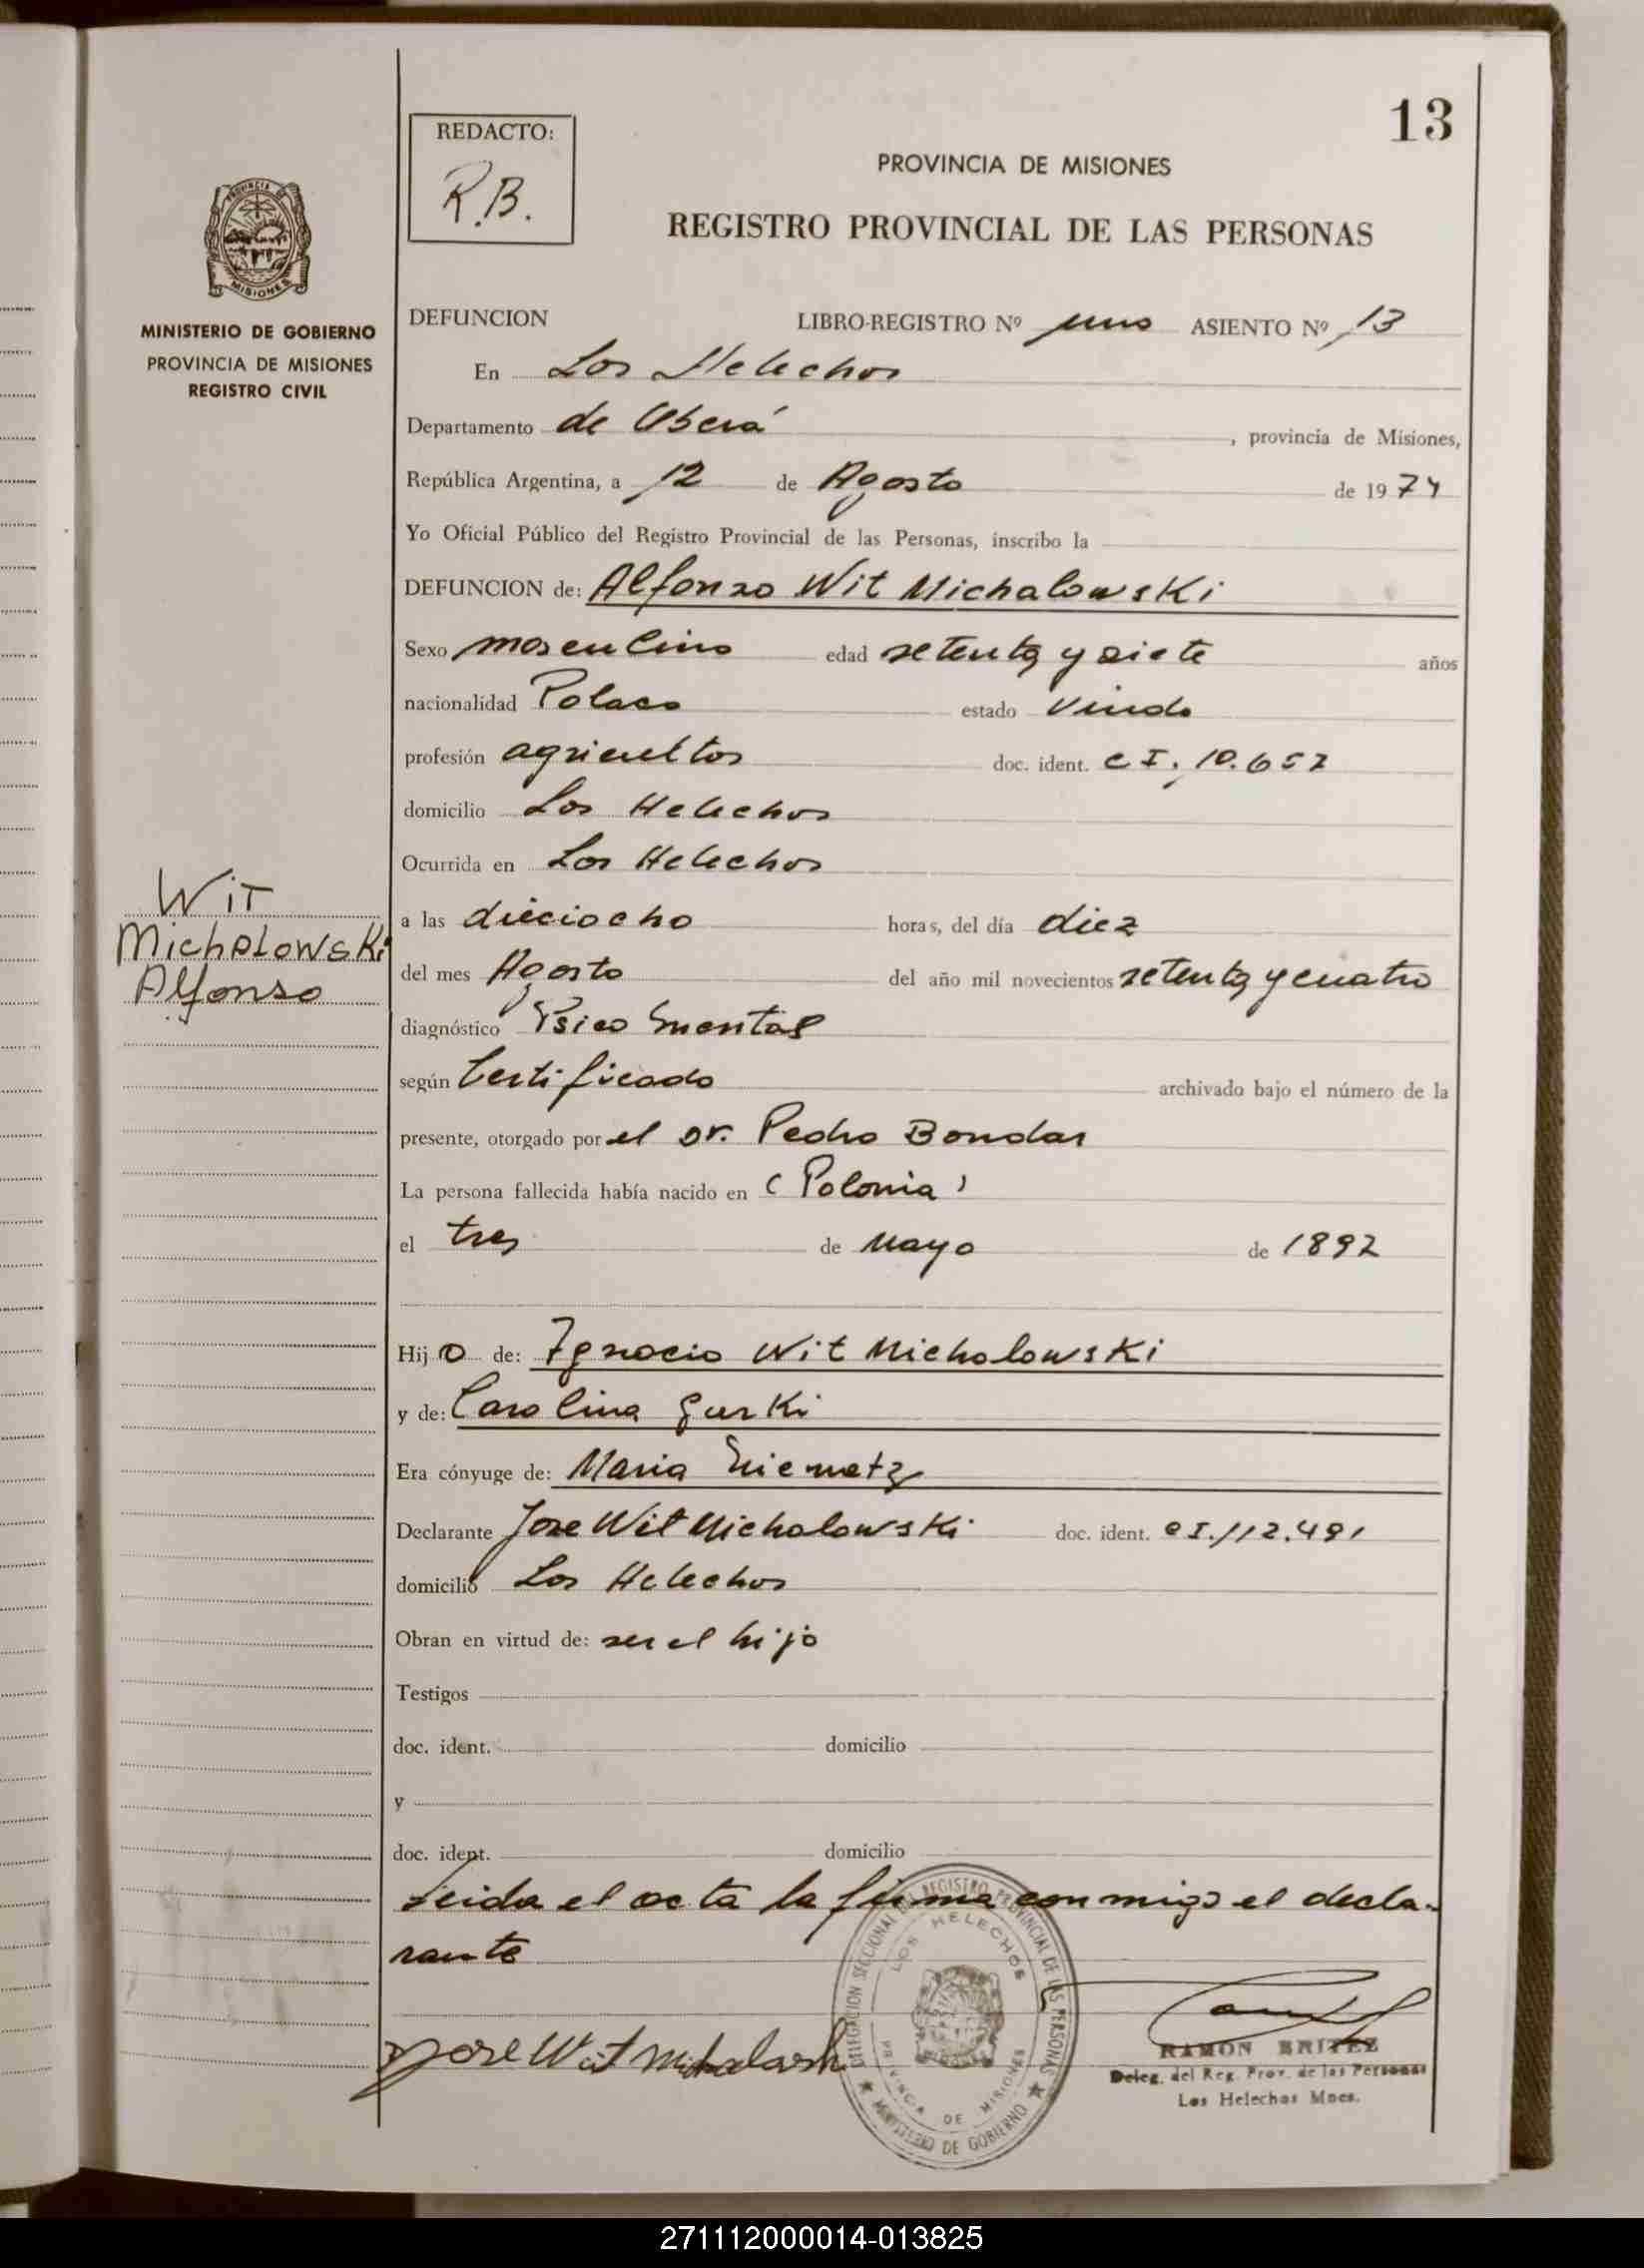 13
REDACTO:
R.B.
PROVINCIA DE MISIONES
REGISTRO PROVINCIAL DE LAS PERSONAS
PROVINCIA DE
MISIONES
MINISTERIO DE GOBIERNO
PROVINCIA DE MISIONES
REGISTRO CIVIL
DEFUNCION LIBRO-REGISTRO Nº uno ASIENTO Nº 13
En Los Helechos
Departamento de Oberá, provincia de Misiones,
República Argentina, a 12 de Agosto de 1974
Yo Oficial Público del Registro Provincial de las Personas, inscribo la
DEFUNCION de: Alfonzo Wit Michalowski
Sexo masculino edad setenta y siete años
nacionalidad Polaco estado Viudo
profesión agricultor doc. ident. C I. 10.657
domicilio Los Helechos
Ocurrida en Los Helechos
Wit
Michalowski
Alfonso
a las dieciocho horas, del día diez
del mes Agosto del año mil novecientos setenta y cuatro
diagnóstico Psico mental
según Certificado archivado bajo el número de la
presente, otorgado por el Dr. Pedro Bondar
La persona fallecida había nacido en (Polonia)
el tres de Mayo de 1892
Hijo de: Ignacio Wit Michalowski
y de: Carolina Gurki
Era cónyuge de: Maria
Declarante Jose Wit Michalowski doc. ident. C I. 112.491
domicilio Los Helechos
Obran en virtud de: ser el hijo
Testigos
doc. ident. domicilio
y
doc. ident. domicilio
Leida el acta la firma conmigo el decla-
rante
DELEGACION SECCIONAL DEL REGISTRO PROVINCIAL DE LAS PERSONAS
LOS HELECHOS
PROVINCIA DE MISIONES
MINISTERIO DE GOBIERNO
Jose Wit
RAMON BRITEZ
Deleg. del Reg. Prov. de las Personas
Los Helechos Mnes.
271112000014-013825